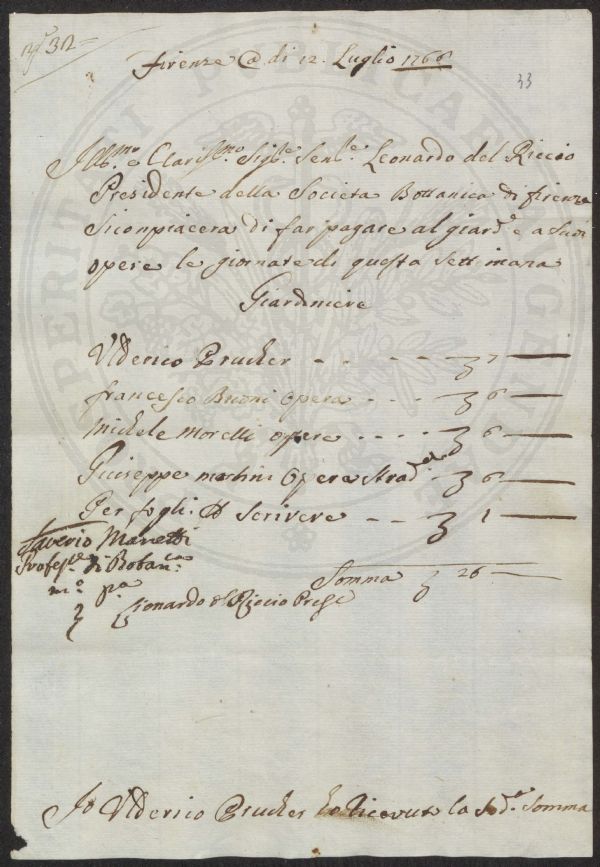 N.o 32
Firenze @ di 12. Luglio 1766
33
Ill.mo e Claris.mo Sig.re Sen.re Leonardo del Riccio
Presidente della Societa Bottanica di firenze
Siconpiacera di far pagare al giard.e e a Suoi
opere le giornate di questa Settimana
Giardiniere
Ulderico Prucker - - - - - 7
francesco Brioni opera - - - 6
Michele Morelli opere - - - - 6
Giuseppe martini Opera - 6
Per fogli Da Scrivere - - 1
Saverio Manetti
Profes.re di Botan.ca
m.o p.a
Somma 26
Leonardo del Riccio Preside
Io Ulderico Prucker ho Ricevuto la Sud.a Somma
PERITAT PUBLICAE AUGENDAE